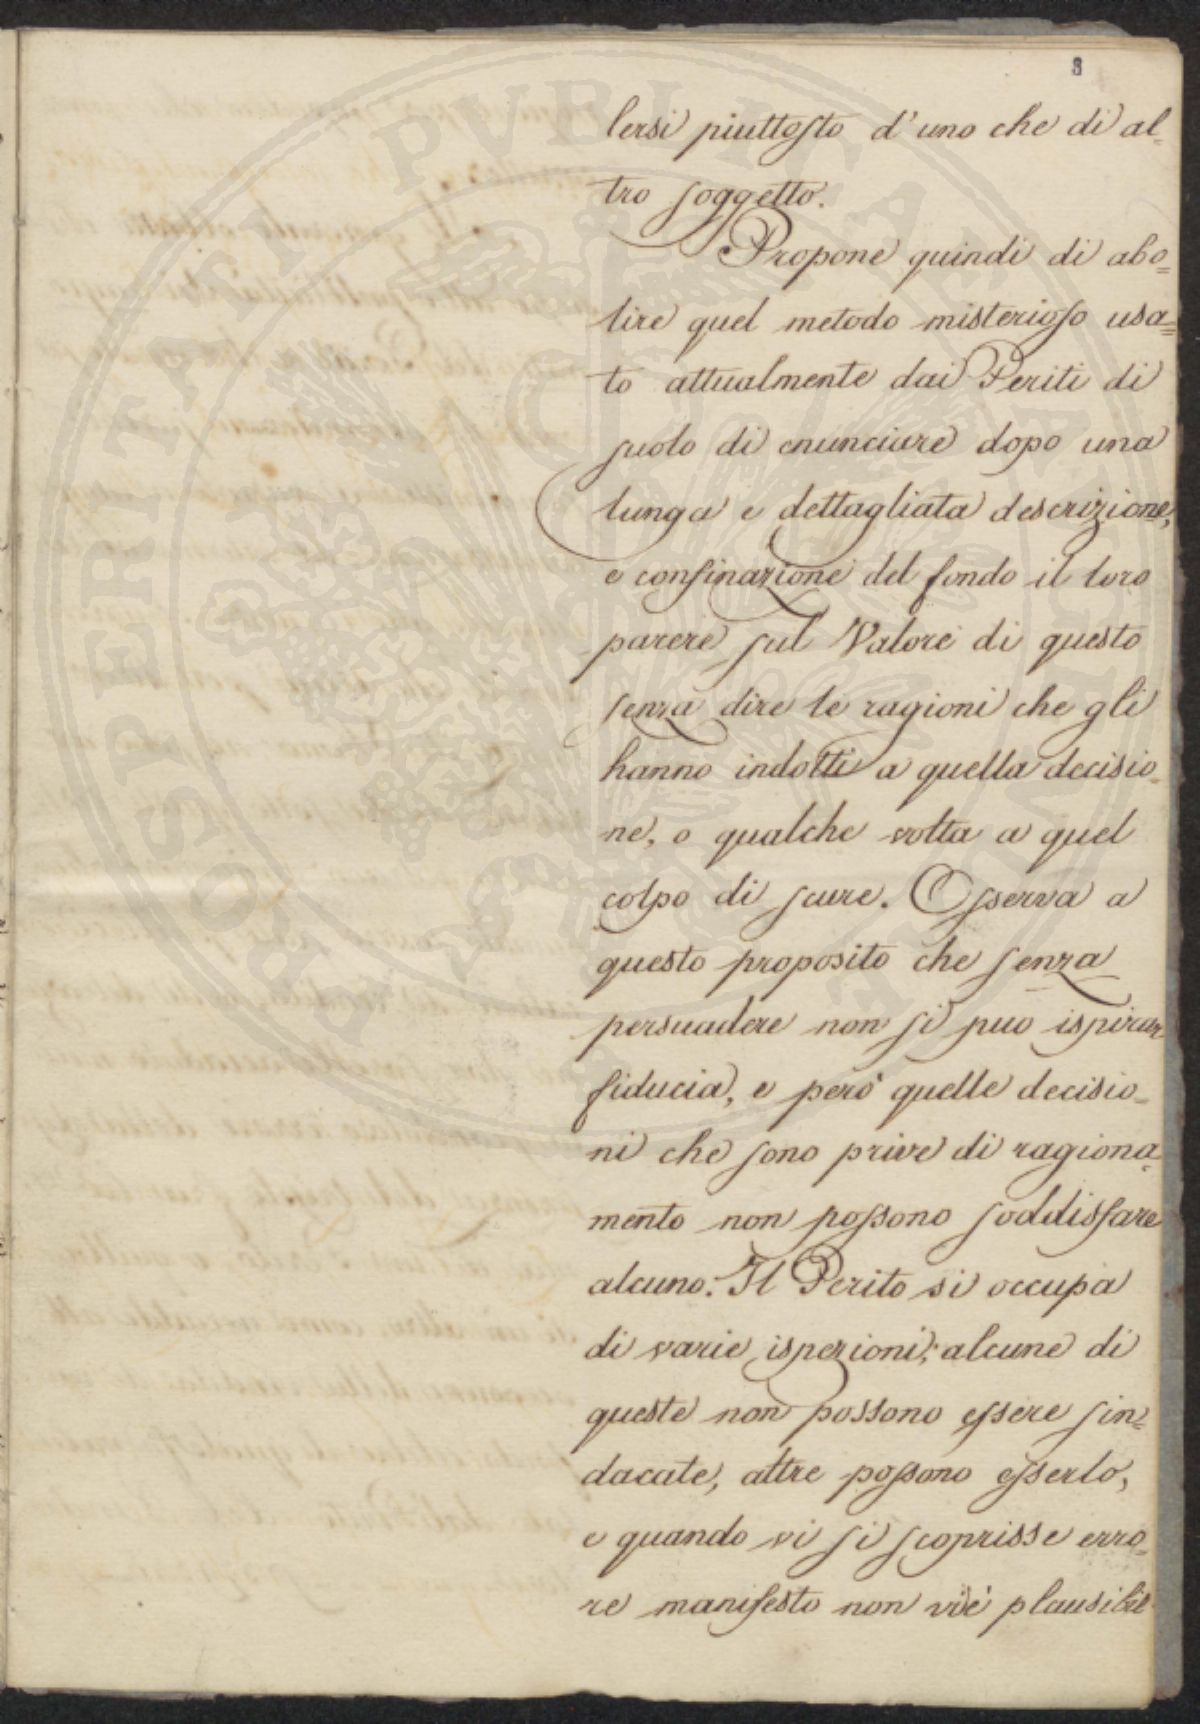 8
lersi piuttosto d'uno che di al-
tro soggetto.
Propone quindi di abo=
lire quel metodo misterioso usa=
to attualmente dai Periti di
suolo di enunciare dopo una
lunga e dettagliata descrizione,
e confinazione del fondo il loro
parere sul Valore di questo
senza dire le ragioni che gli
hanno indotti a quella decisio-
ne, o qualche volta a quel
colpo di scure. Osserva a
questo proposito che senza
persuadere non si può ispirar
fiducia, e però quelle decisio-
ni che sono prive di ragiona-
mento non possono soddisfare
alcuno. Il Perito si occupa
di varie ispezioni; alcune di
queste non possono essere sin=
dacate, altre possono esserlo,
e quando vi si scoprisse erro-
re manifesto non vi è plausibil
PROSPERITATI PVBLICAE AVGENDAE